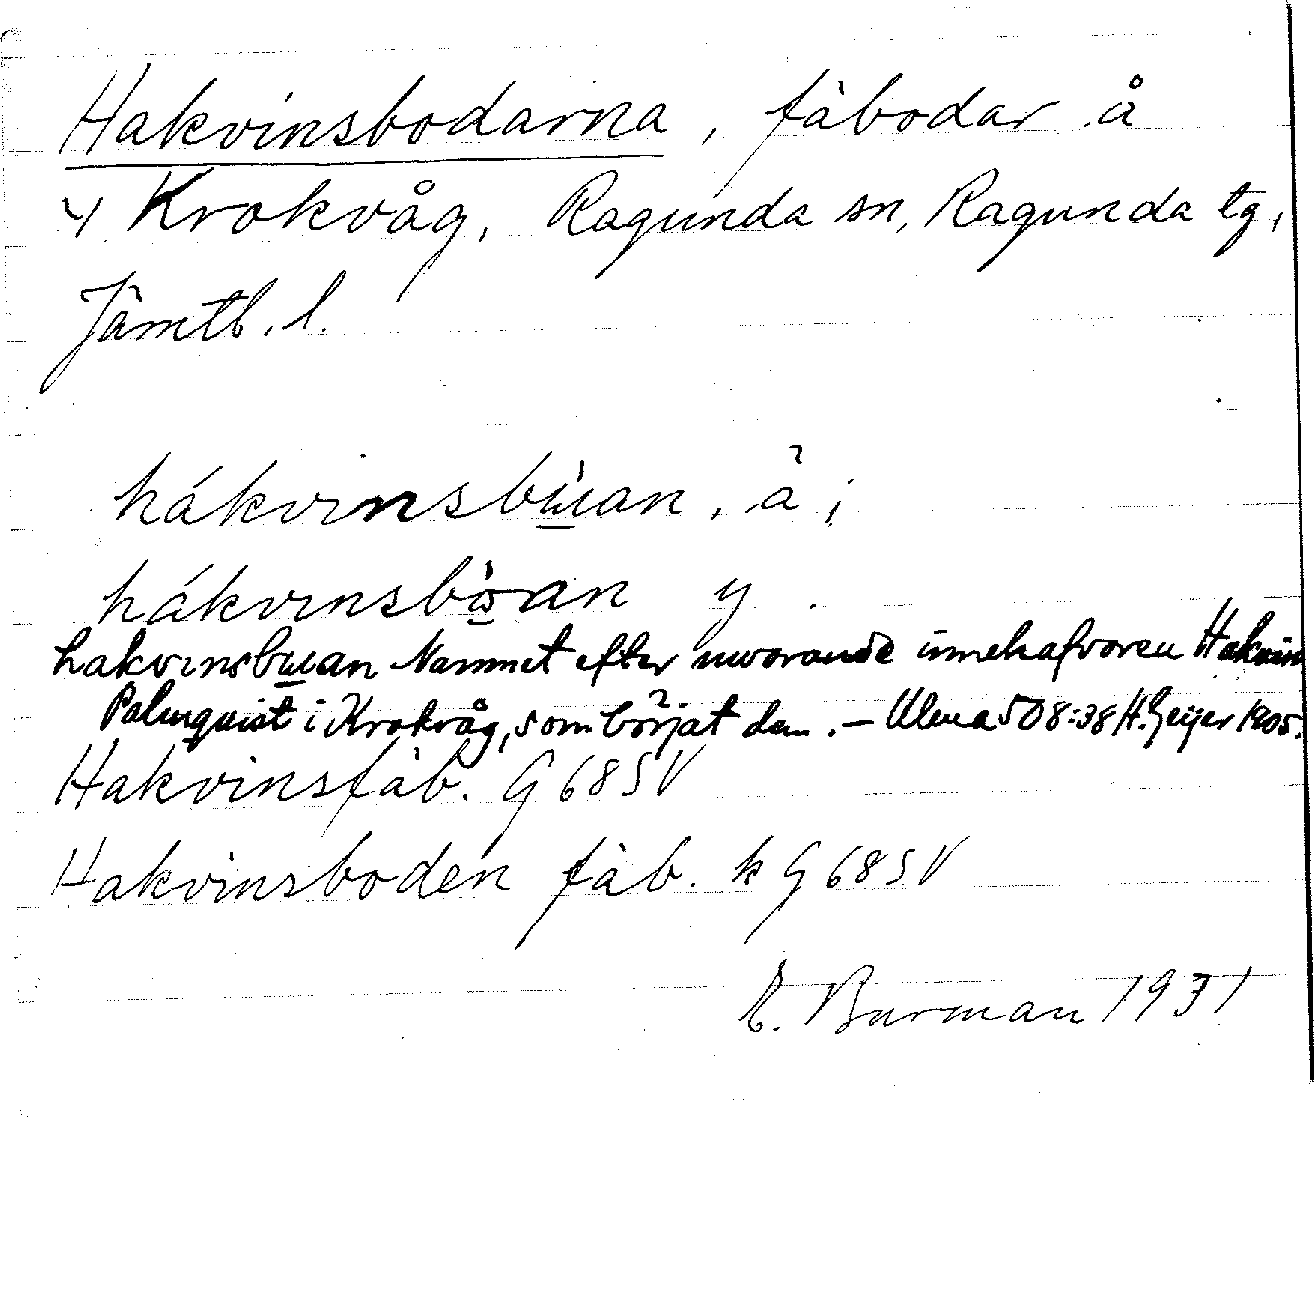 Hakvinsbodarna, fäbodar å
Krokvåg, Ragunda sn, Ragunda tg,
Jämtl. l.
hákvinsbùan, å;
hákvinsbòan y.
hakvinsbuan Namnet efter nuvorande innehafvaren Hakvin
Palmquist i Krokvåg, som börjat dem. – Ulma 508:38 H. Geijer 1905.
Hakvinsfäb. G 68 SV
Hakvinsboden fäb. k G 68 SV
E. Burman 1931